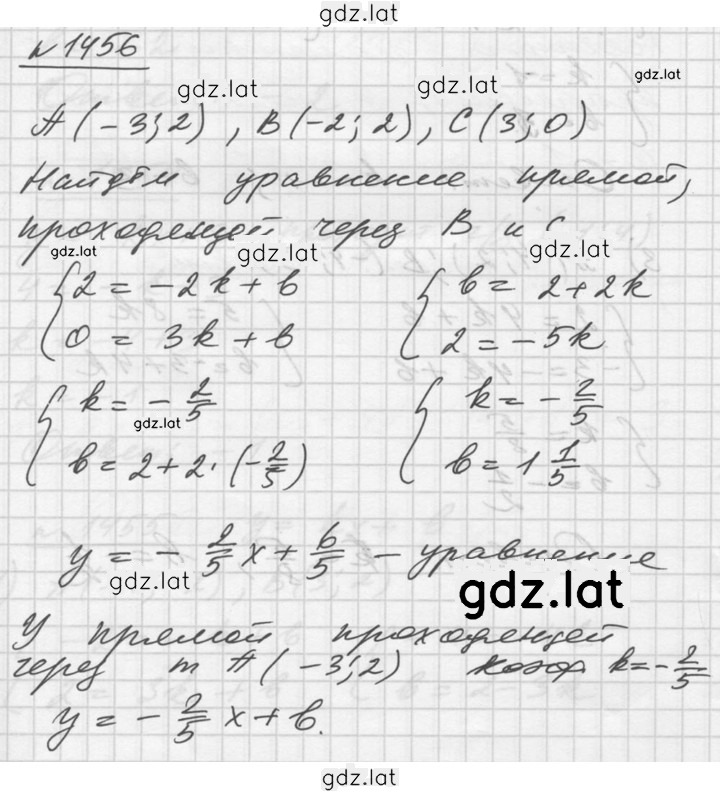 gdz.lat
№ 1456
gdz.lat gdz.lat gdz.lat
A(-3; 2), B(-2; 2), C(3; 0)
Найдём уравнение прямой,
проходящей через B и C
gdz.lat gdz.lat gdz.lat
{ 2 = -2k + b { b = 2 + 2k
0 = 3k + b 2 = -5k
{ k = -2/5 { k = -2/5
gdz.lat
b = 2 + 2·(-2/5) b = 1 1/5
y = -2/5 x + 6/5 - уравнение
gdz.lat gdz.lat
У прямой проходящей
через т A(-3; 2) коэф k = -2/5
y = -2/5 x + b.
gdz.lat